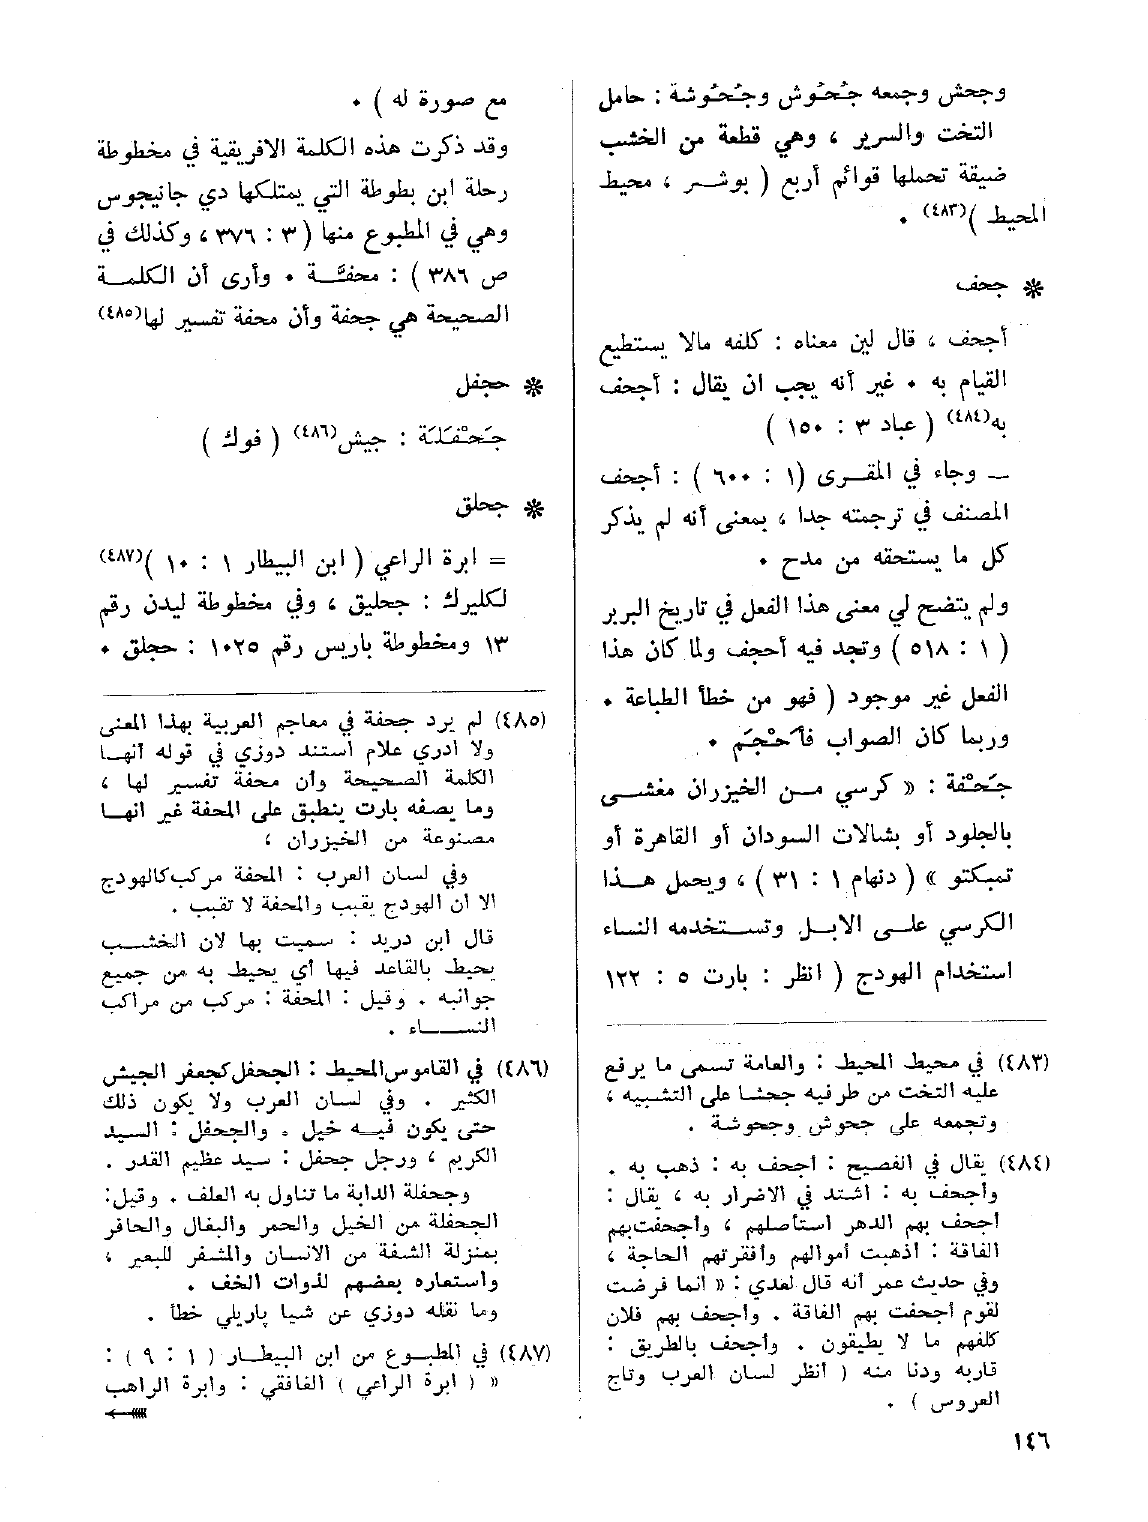 وجحش وجمعه جُحُوش وجُحُوشة : حامل
التخت والسرير ، وهي قطعة من الخشب
ضيقة تحملها قوائم أربع ( بوشر ، محيط
المحيط )(٤٨٣) •
* جحف
أجحف ، قال لين معناه : كلفه مالا يستطيع
القيام به • غير أنه يجب ان يقال : أجحف
به(٤٨٤) ( عباد ٣ : ١٥٠ )
— وجاء في المقرى (١ : ٦٠٠ ) : أجحف
المصنف في ترجمته جدا ، بمعنى أنه لم يذكر
كل ما يستحقه من مدح •
ولم يتضح لي معنى هذا الفعل في تاريخ البربر
( ١ : ٥١٨ ) وتجد فيه أحجف ولما كان هذا
الفعل غير موجود ( فهو من خطأ الطباعة •
وربما كان الصواب فأحْجَم •
جَحْفة : « كرسي من الخيزران مغشى
بالجلود أو بشالات السودان أو القاهرة أو
تمبكتو » ( دنهام ١ : ٣١ ) ، ويحمل هذا
الكرسي على الابل وتستخدمه النساء
استخدام الهودج ( انظر : بارت ٥ : ١٢٢
(٤٨٣) في محيط المحيط : والعامة تسمى ما يرفع
عليه التخت من طرفيه جحشا على التشبيه ،
وتجمعه على جحوش وجحوشة .
(٤٨٤) يقال في الفصيح : أجحف به : ذهب به .
وأجحف به : اشتد في الاضرار به ، يقال :
أجحف بهم الدهر استأصلهم ، وأجحفت بهم
الفاقة : أذهبت أموالهم وأفقرتهم الحاجة ،
وفي حديث عمر أنه قال لعدي : « انما فرضت
لقوم أجحفت بهم الفاقة . وأجحف بهم فلان
كلفهم ما لا يطيقون . وأجحف بالطريق :
قاربه ودنا منه ( أنظر لسان العرب وتاج
العروس ) .
مع صورة له ) •
وقد ذكرت هذه الكلمة الافريقية في مخطوطة
رحلة ابن بطوطة التي يمتلكها دي جانيجوس
وهي في المطبوع منها ( ٣ : ٣٧٦ ، وكذلك في
ص ٣٨٦ ) : محفَّة • وأرى أن الكلمة
الصحيحة هي جحفة وأن محفة تفسير لها(٤٨٥)
* حجفل
جَحْفَلَة : جيش(٤٨٦) ( فوك )
* جحلق
= ابرة الراعي ( ابن البيطار ١ : ١٠ )(٤٨٧)
لكليرك : جحليق ، وفي مخطوطة ليدن رقم
١٣ ومخطوطة باريس رقم ١٠٢٥ : حجلق •
(٤٨٥) لم يرد جحفة في معاجم العربية بهذا المعنى
ولا ادري علام استند دوزي في قوله أنها
الكلمة الصحيحة وأن محفة تفسير لها ،
وما يصفه بارت ينطبق على المحفة غير انها
مصنوعة من الخيزران ،
وفي لسان العرب : المحفة مركب كالهودج
الا ان الهودج يقبب والمحفة لا تقبب .
قال ابن دريد : سميت بها لان الخشب
يحيط بالقاعد فيها أي يحيط به من جميع
جوانبه . وقيل : المحفة : مركب من مراكب
النساء .
(٤٨٦) في القاموس المحيط : الجحفل كجعفر الجيش
الكثير . وفي لسان العرب ولا يكون ذلك
حتى يكون فيه خيل . والجحفل : السيد
الكريم ، ورجل جحفل : سيد عظيم القدر .
وجحفلة الدابة ما تناول به العلف . وقيل:
الجحفلة من الخيل والحمر والبغال والحافر
بمنزلة الشفة من الانسان والمشفر للبعير ،
واستعاره بعضهم لذوات الخف .
وما نقله دوزي عن شيا پاريلي خطأ .
(٤٨٧) في المطبوع من ابن البيطار ( ١ : ٩ ) :
« ( ابرة الراعي ) الغافقي : وابرة الراهب
١٤٦